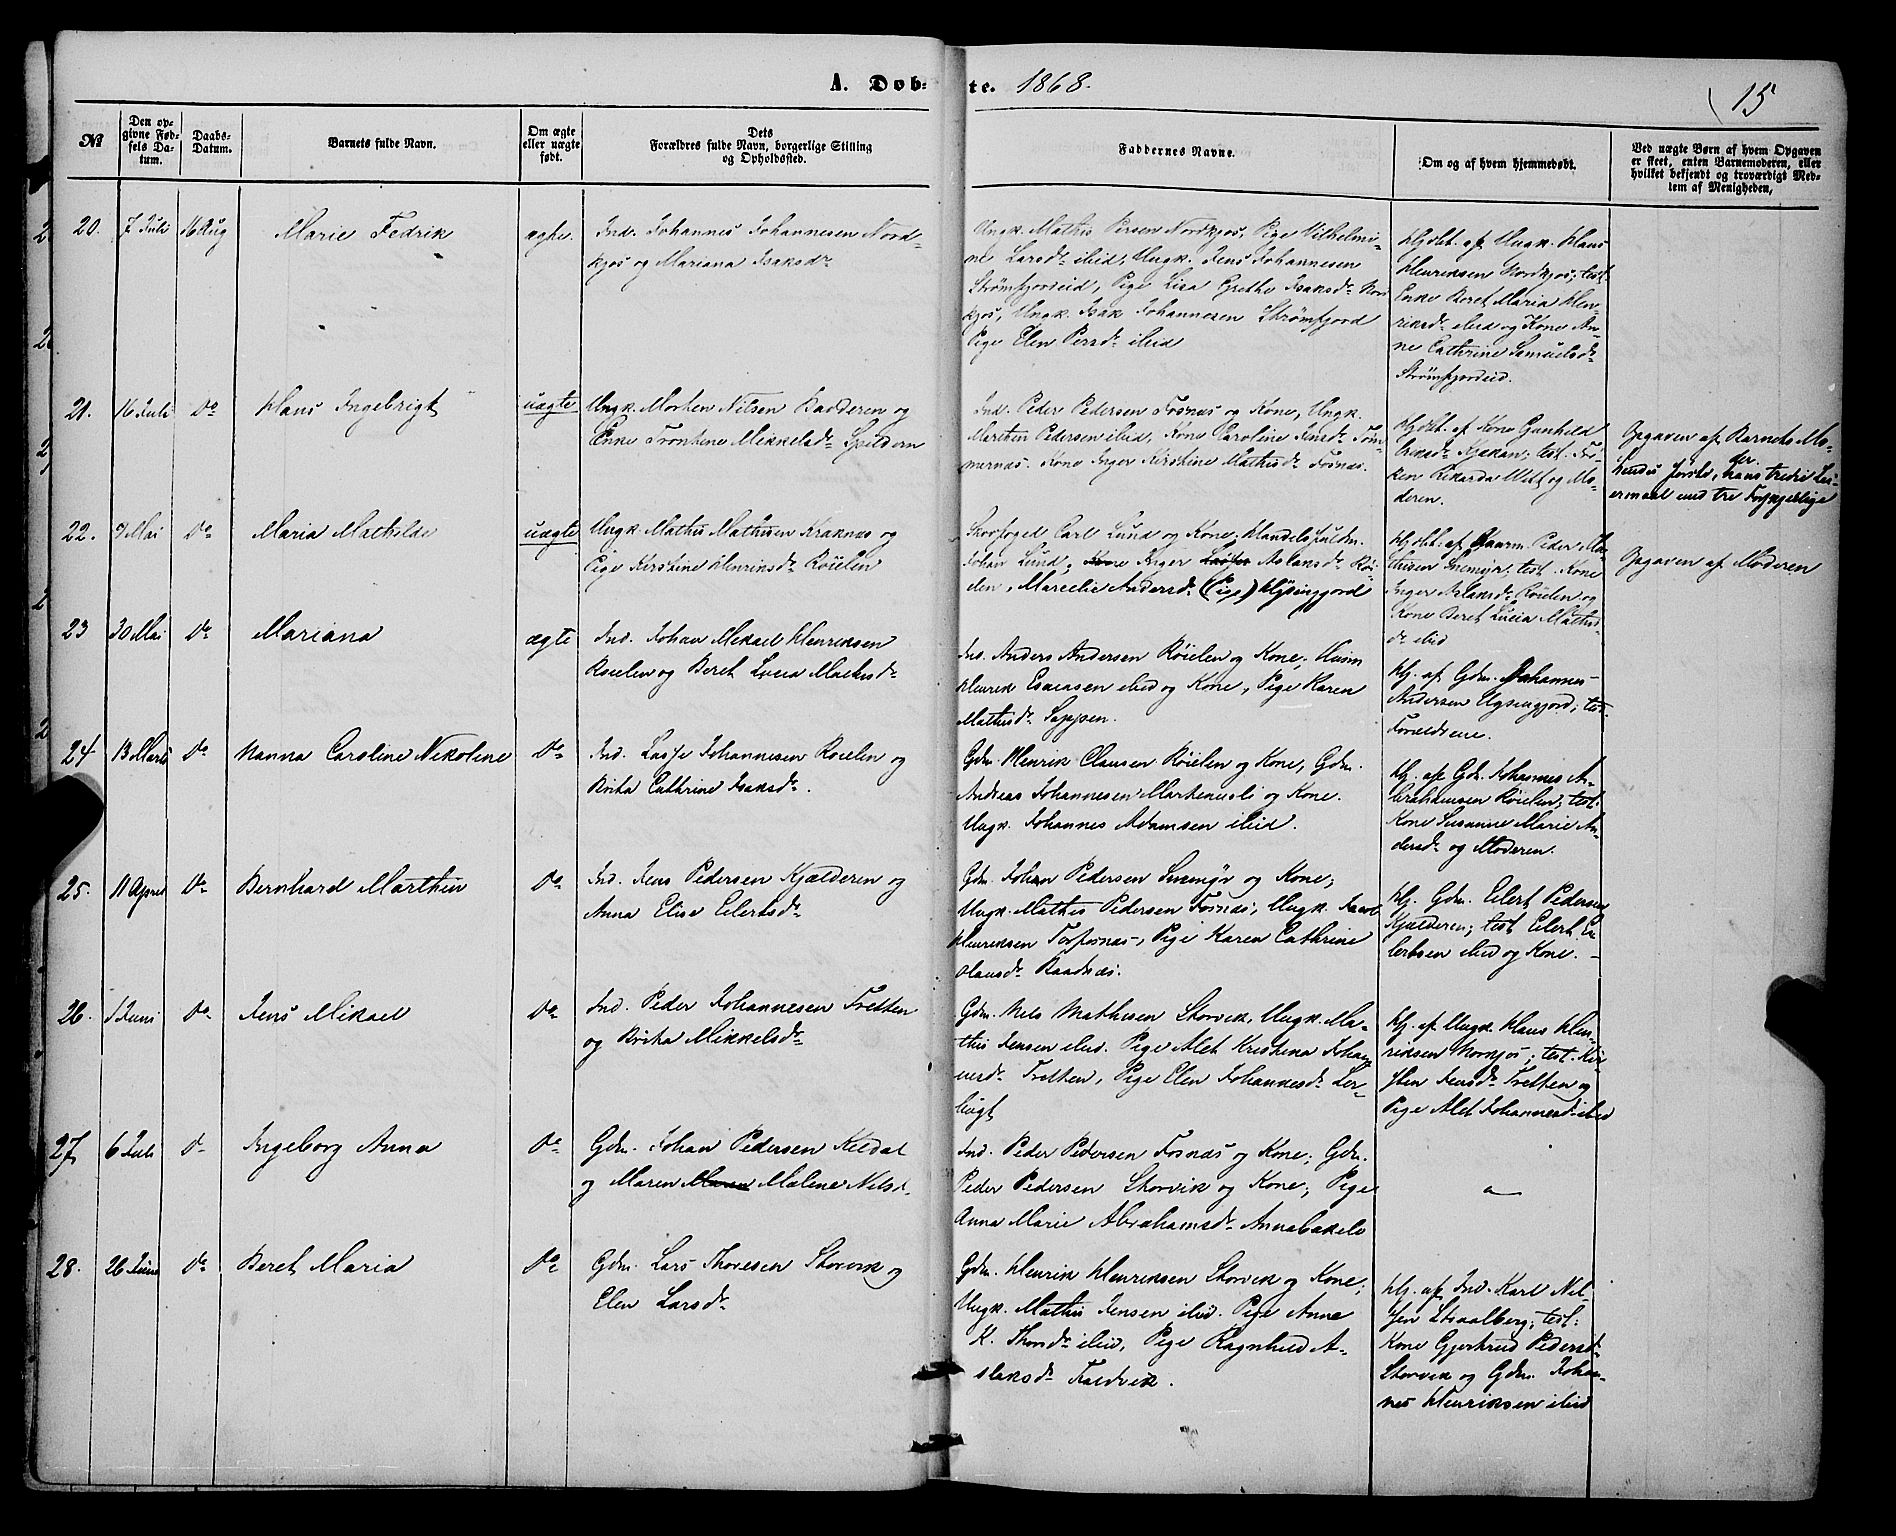 A. Døb-te. 1868.
15
№
Den op-
givne Fød-
sels Da-
tum.
Daabs-
Datum.
Barnets fulde Navn.
Om ægte
eller uægte
født.
Dets
Forældres fulde Navn, borgerlige Stilling
og Opholdssted.
Faddernes Navne.
Om og af hvem hjemmedøbt.
Ved uægte Børn af hvem Opgaven
er skeet, enten Barnemoderen, eller
hvilket bekjendt og troværdigt Med-
lem af Menigheden.
20.
7 Juli
16 Aug
Marie Fedrik
ægte.
Ind. Johannes Johannesen Nord-
kjos og Mariana Isaksdr
Ungk. Mathis Persen Nordkjos, Pige Vilhelmi-
ne Larsdr ibid, Ungk. Jens Johannesen
Strømfjordeid, Pige Lisa Grethe Isaksdr Nor
kjos, Ungk. Isak Johannesen Strømfjord
Pige Elen Persdr ibid
Hjdbt. af Ungk. Hans
Henriksen Nordkjos; test
Enke Beret Maria Hen-
riksdr ibid og Kone An-
ne Cathrine Samuelsdr
Strømfjordeid.
21.
16 Juli
Do
Hans Ingebrigt
uægte
Ungk. Morten Nilsen Badderen og
Enke Tronhene Mikkelsdr Spildern
Ind. Peder Pedersen Fosnæs og Kone, Ungk.
Marthin Pedersen ibid, Kone Caroline Jensdr Tom-
mernæs. Kone Inger Kirstine Mathisdr Fosnæs.
Hjdbt. af Kone Gunhild
Eriksdr Kjækan; test. Frø-
ken Rikarda Witt og Mo-
deren.
Opgaven af Barnets Mo-
der
hendes første, hans tredie Lei-
ermaal med tre Forskjellige
22.
9 Mai
Do
Maria Mathilde
uægte
Ungk. Mathis Mathisen Kraknæs og
Pige Kirstine Henriksdr Røielen
Skovfoged Carl Lund og Kone, Handelsfuldm.
Johan Lund, Kone Inger Aslaksdr Røi-
elen, Marcelie Andersdr (Pige) Uysingjord
Hjdbt: af Gaarm. Peder Ma-
thisen Snemyr; test. Kone
Inger Aslaksdr Røielen og
Kone Beret Lucia Mathis-
dr ibid
Opgaven af Moderen
23
30 Mai
Do
Mariana
ægte
Ind. Johan Mikael Henriksen
Røielen og Beret Lucia Mathisdr
Ind. Anders Andersen Røielen og Kone, Husm
Henrik Esaiasen ibid og Kone, Pige Karen
Mathisdr Sappen.
Hj. af Gdm. Johannes
Andersen Uysingjord; test.
Forældrene.
24
13 Marts
Do
Nanna Caroline Nikoline
Do
Ind. Lasse Johannesen Røielen og
Brita Cathrine Isaksdr.
Gdm. Henrik Clausen Røielen og Kone, Gdm.
Andreas Johannesen Martenesli og Kone.
Ungk. Johannes Adamsen ibid.
Hj. af Gdm. Johannes A-
brahamsen Røielen; test:
Kone Susanne Marie An-
dersdr og Moderen.
25.
11 April
Do
Bernhard Marthin
Do
Ind. Jens Pedersen Kjælderen og
Anna Elise Eilertsdr
Gdm. Johan Pedersen Snemyr og Kone,
Ungk. Mathis Pedersen Fosnæs, Ungk. Jacob
Henriksen Torfosnæs, Pige Karen Cathrine
Olausdr Baadnæs.
Hj. Gdm. Eilert Pedersen
Kjælderen; test Eilert Ei-
lertsen ibid og Kone.
26.
1 Juni
Do
Jens Mikael
Do
Ind. Peder Johannesen Tretten
og Brita Mikkelsdr
Gdm. Nils Mathisen Storvik, Ungk. Ma-
this Jensen ibid. Pige Alet Kristina Johan-
nesdr Tretten, Pige Elen Johannesdr Ler-
bugt
Hj. af Ungk. Hans Hen-
riksen Norkjos; test. Kir-
sten Jensdr Tretten og
Pige Alet Johannesdr ibid
27.
6 Juli
Do
Ingeborg Anna
Do
Gdm. Johan Pedersen Kildal
og Maren Maren Malene Nilsd.
Ind. Peder Pedersen Fosnæs og Kone; Gdm.
Peder Pedersen Storvik og Kone; Pige
Anna Marie Abrahamsdr Annabakels
28.
26 Juni
Do
Beret Maria
Do
Gdm. Lars Thoresen Storvik og
Elen Larsdr
Gdm. Henrik Henriksen Storvik og Kone,
Ungk. Mathis Jensen ibid. Pige Anne
K. Thorsdr ibid, Pige Ragnhild A-
slaksdr Kaldvik.
Hj. af Ind. Karl Nil-
sen Straalberg; test:
Kone Gjertrud Pedersdr
Storvik og Gdm. Johan-
nes Henriksen ibid